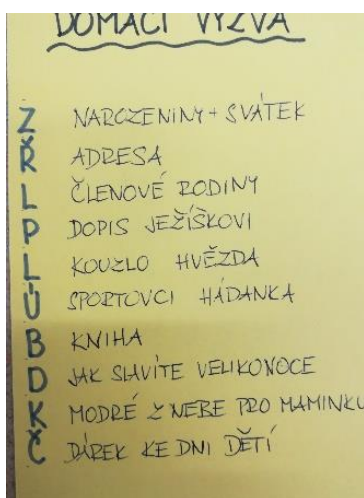 DOMÁCÍ VÝZVA
Z NAROZENINY + SVÁTEK
Ř ADRESA
L ČLENOVÉ RODINY
P DOPIS JEŽÍŠKOVI
L KOUZLO HVĚZDA
Ú SPORTOVCI HÁDANKA
B KNIHA
D JAK SLAVÍTE VELIKONOCE
K MODRÉ Z NEBE PRO MAMINKU
Č DÁREK KE DNI DĚTÍ